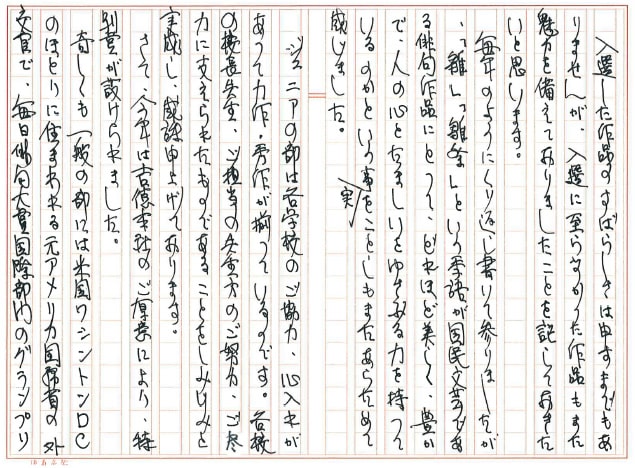 入選した作品のすばらしさは申すまでもあ
りませんが、入選に至らなかった作品もまた
魅力を備えておりましたことを記しておきた
いと思います。
毎年のようにくり返し書いて参りましたが
、「雛」「雛祭」という季語が国民文芸であ
る俳句作品にとって、どれほど美しく、豊か
で、人の心とたましいとゆさぶる力を持って
いるのかという事実をことしもまたあらためて
感じました。
ジュニアの部は各学校のご協力、心入れが
あって力作・秀作が揃っているのです。各校
の校長先生、ご担当の先生方のご努力、ご尽
力に支えられたものであることをしみじみと
実感し、感謝申上げております。
さて、今年は吉徳本社のご厚意により、特
別賞が設けられました。
奇しくも一般の部には米国ワシントンDC
のほとりに住まわれる元アメリカ国務省の外
交官で、毎日俳句大賞国際部門のグランプリ